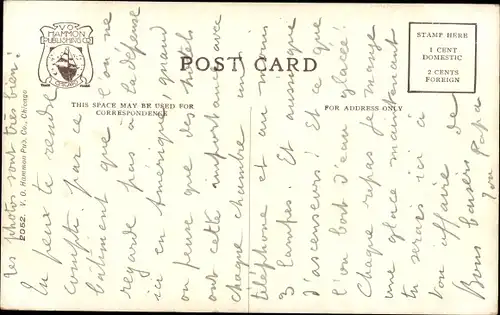 V.O.
HAMMON
PUBLISHING CO.
CHICAGO
POST CARD
THIS SPACE MAY BE USED FOR
CORRESPONDENCE
FOR ADDRESS ONLY
STAMP HERE
1 CENT
DOMESTIC
2 CENTS
FOREIGN
2052. V. O. Hammon Pub. Co., Chicago
Les photos sont très bien!
Tu peux te rendre
compte par ce
bâtiment que l'on ne
regarde pas à la dépense
ici en Amérique, quand
on pense que des hôtels
ont cette importance avec
chaque chambre un
téléphone et au moins
3 lampes Et aussi que
d'ascenseurs! Et ce que
l'on boit d'eau glacée!
Chaque repas je mange
une glace maintenant
tu serais ici à
ton affaire
Bons baisers de
Ton Papa